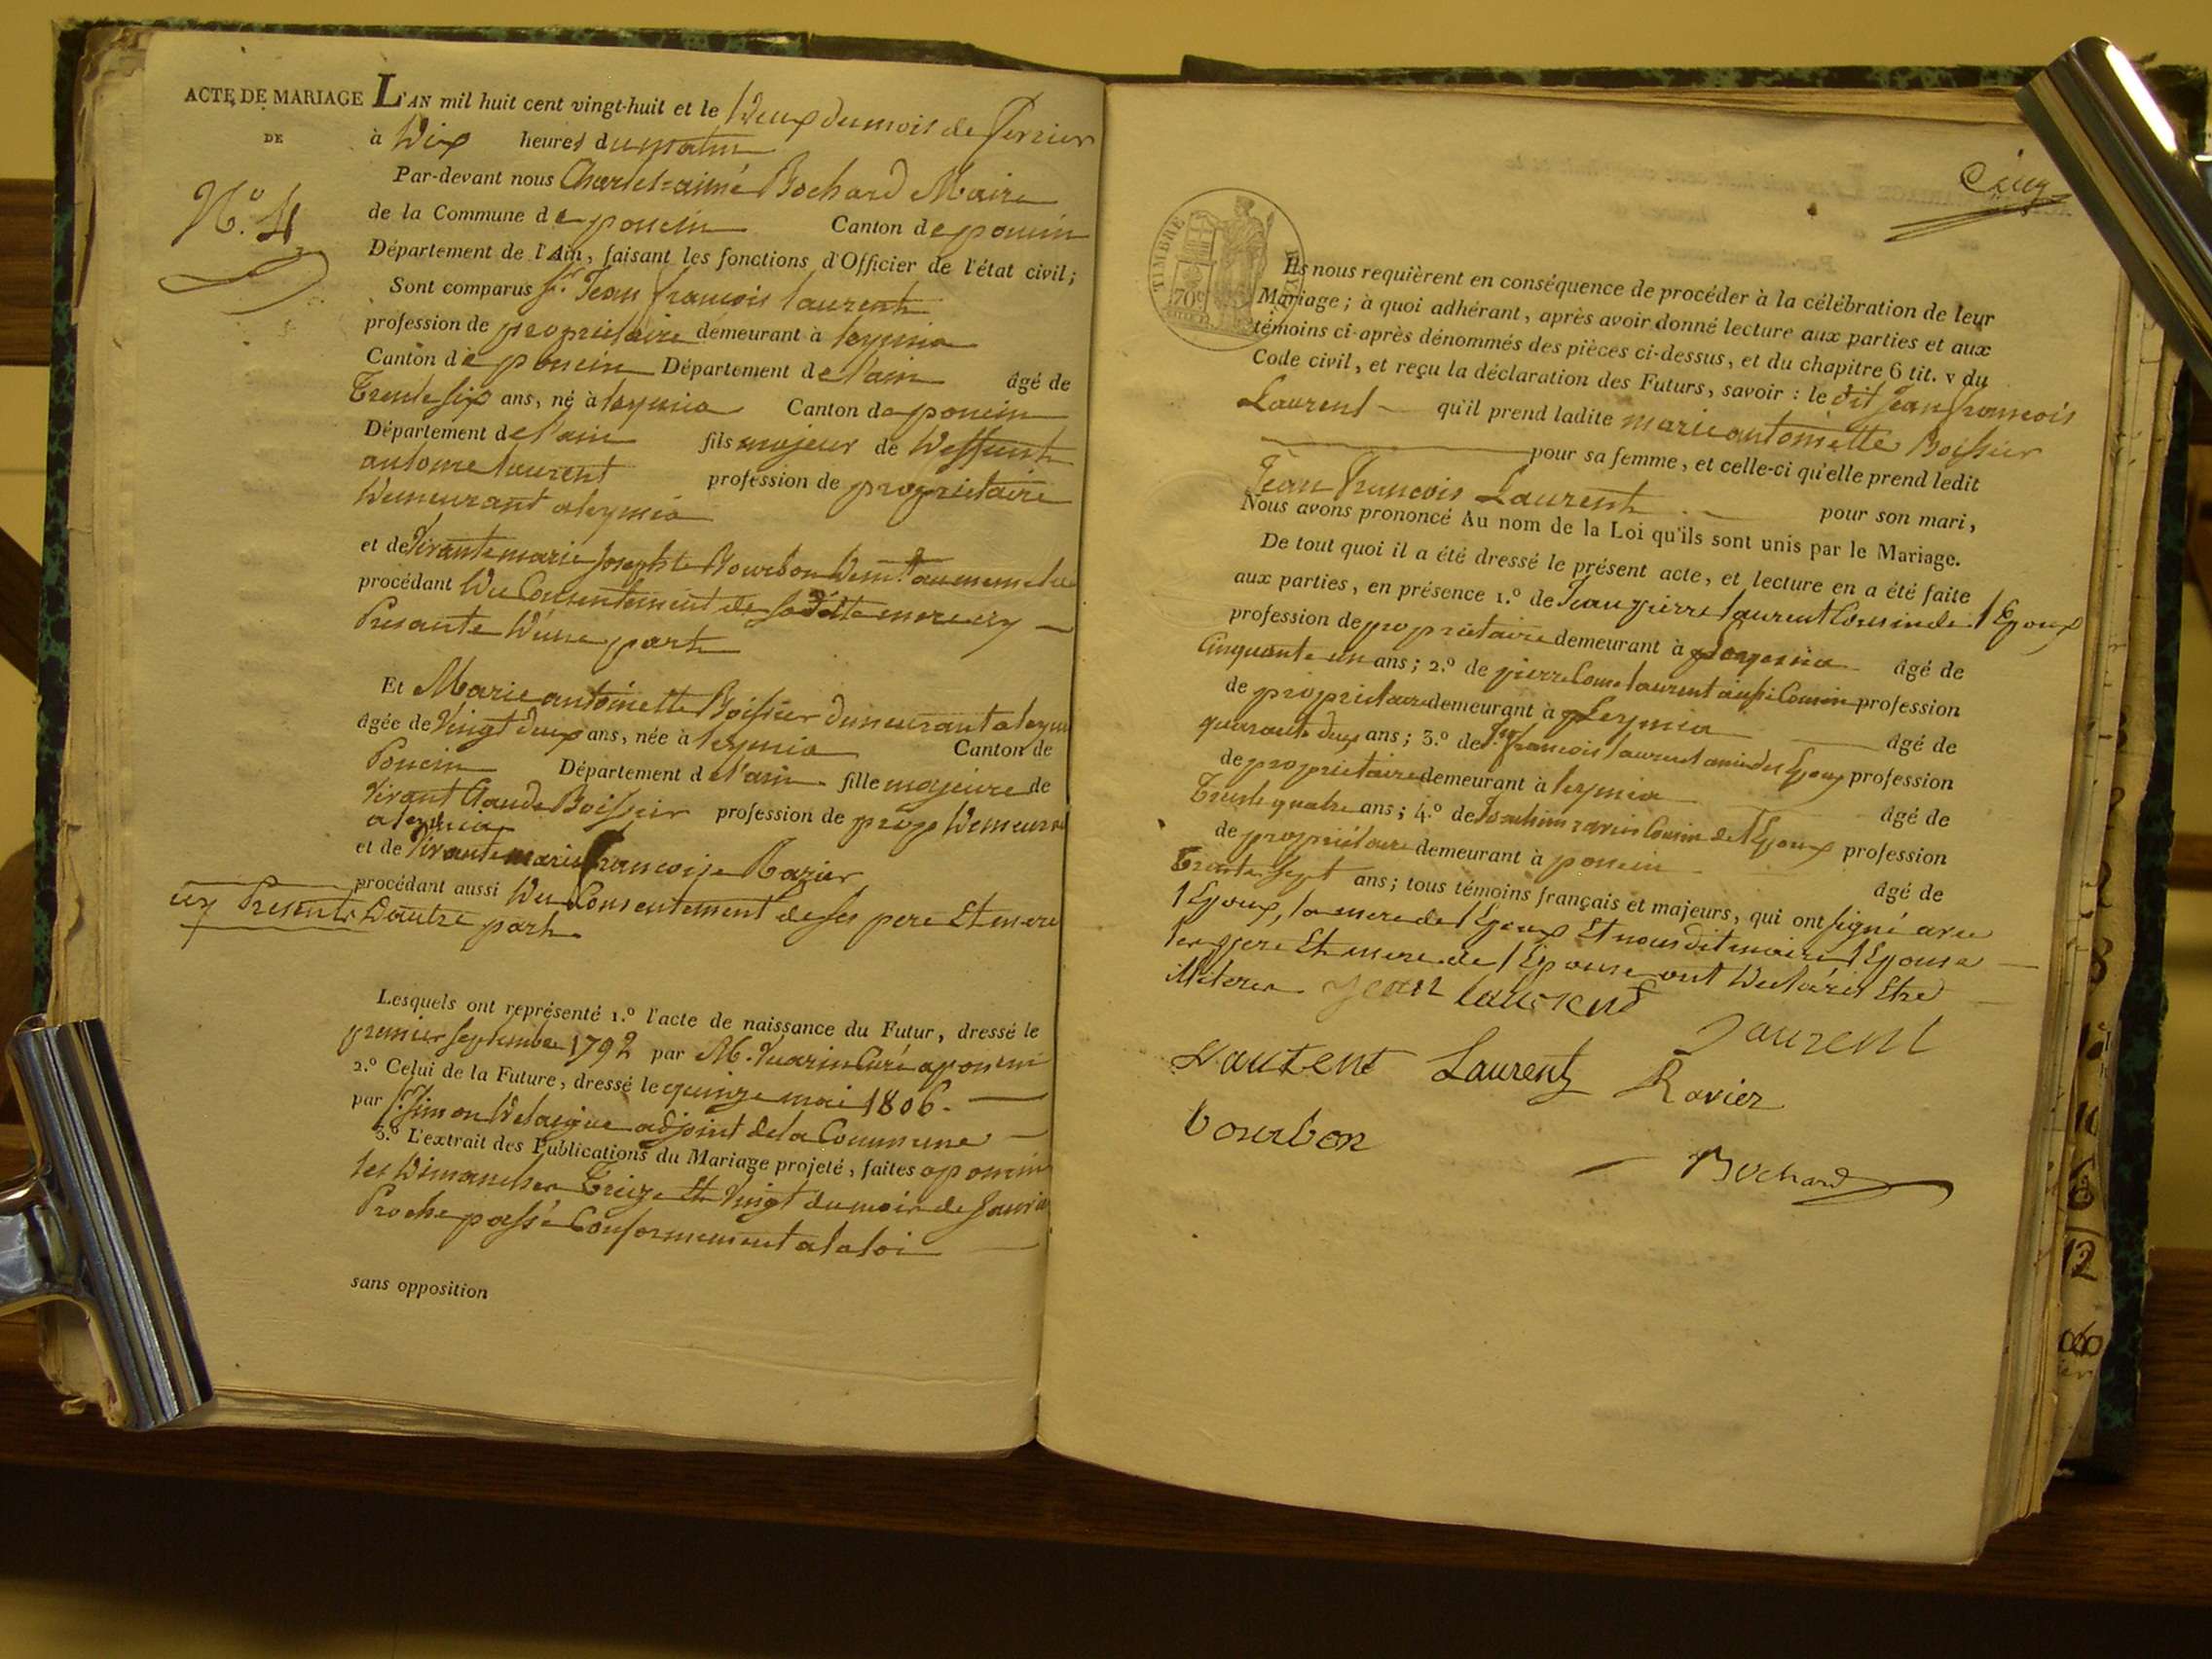 ACTE DE MARIAGE
DE
N.º 4
L'AN mil huit cent vingt-huit et le Deux du mois de fevrier
à Dix heures du matin
Par-devant nous Charles-aimé Bochard Maire
de la Commune de poncin Canton de poncin
Département de l'Ain, faisant les fonctions d'Officier de l'état civil;
Sont comparus Sr. Jean francois laurent
profession de proprietaire demeurant à leymia
Canton de poncin Département de l'ain âgé de
Trente six ans, né à leymia Canton de poncin
Département de l'ain fils majeur de Deffunt
antoine laurent profession de proprietaire
Demeurant a leymia
et de vivante marie Josephte Bourbon Demt. au meme lieu
procédant Du Consentement de sadite mere icy
Presante D'une part
Et Marie antoinette Boissier demeurant a leymia
âgée de vingt deux ans, née à leymia Canton de
Poncin Département de l'ain fille majeure de
vivant Claude Boissier profession de prop. Demeurant
a leymia
et de vivante marie francoise Ravier
procédant aussi Du Consentement de ses pere Et mere
icy Presents D'autre part.
Lesquels ont représenté 1.º l'acte de naissance du Futur, dressé le
premier septembre 1792 par M. Curé a poncin
2.º Celui de la Future, dressé le quinze mai 1806.
par Sr. Simon adjoint de la Commune
3.º L'extrait des Publications du Mariage projeté, faites a poncin
les Dimanches Treize Et vingt du mois de Janvier
Proche passé Conformement a la loi
sans opposition
Cinq
TIMBRE ROYAL
70c
Ils nous requièrent en conséquence de procéder à la célébration de leur
Mariage; à quoi adhérant, après avoir donné lecture aux parties et aux
témoins ci-après dénommés des pièces ci-dessus, et du chapitre 6 tit. v du
Code civil, et reçu la déclaration des Futurs, savoir : le dit Jean francois
Laurent qu'il prend ladite marie antoinette Boissier
pour sa femme, et celle-ci qu'elle prend ledit
Jean francois Laurent pour son mari,
Nous avons prononcé Au nom de la Loi qu'ils sont unis par le Mariage.
De tout quoi il a été dressé le présent acte, et lecture en a été faite
aux parties, en présence 1.º de Jean pierre laurent Cousin de l'Epoux
profession de proprietaire demeurant à Leymia âgé de
Cinquante un ans; 2.º de pierre Come laurent aussi Cousin profession
de proprietaire demeurant à Leymia âgé de
quarante deux ans; 3.º de francois laurent ami des Epoux profession
de proprietaire demeurant à leymia âgé de
Trente quatre ans; 4.º de Joachim ravier Cousin de l'Epoux profession
de propriétaire demeurant à poncin âgé de
Trente sept ans; tous témoins français et majeurs, qui ont signé avec
l'Epoux, la mere de l'Epoux Et nous dit maire l'Epouse
les pere Et mere de l'Epouse ont Declarés Etre
illiteres. Jean laurent
Laurent
Laurent Laurent Ravier
bourbon
Bochard